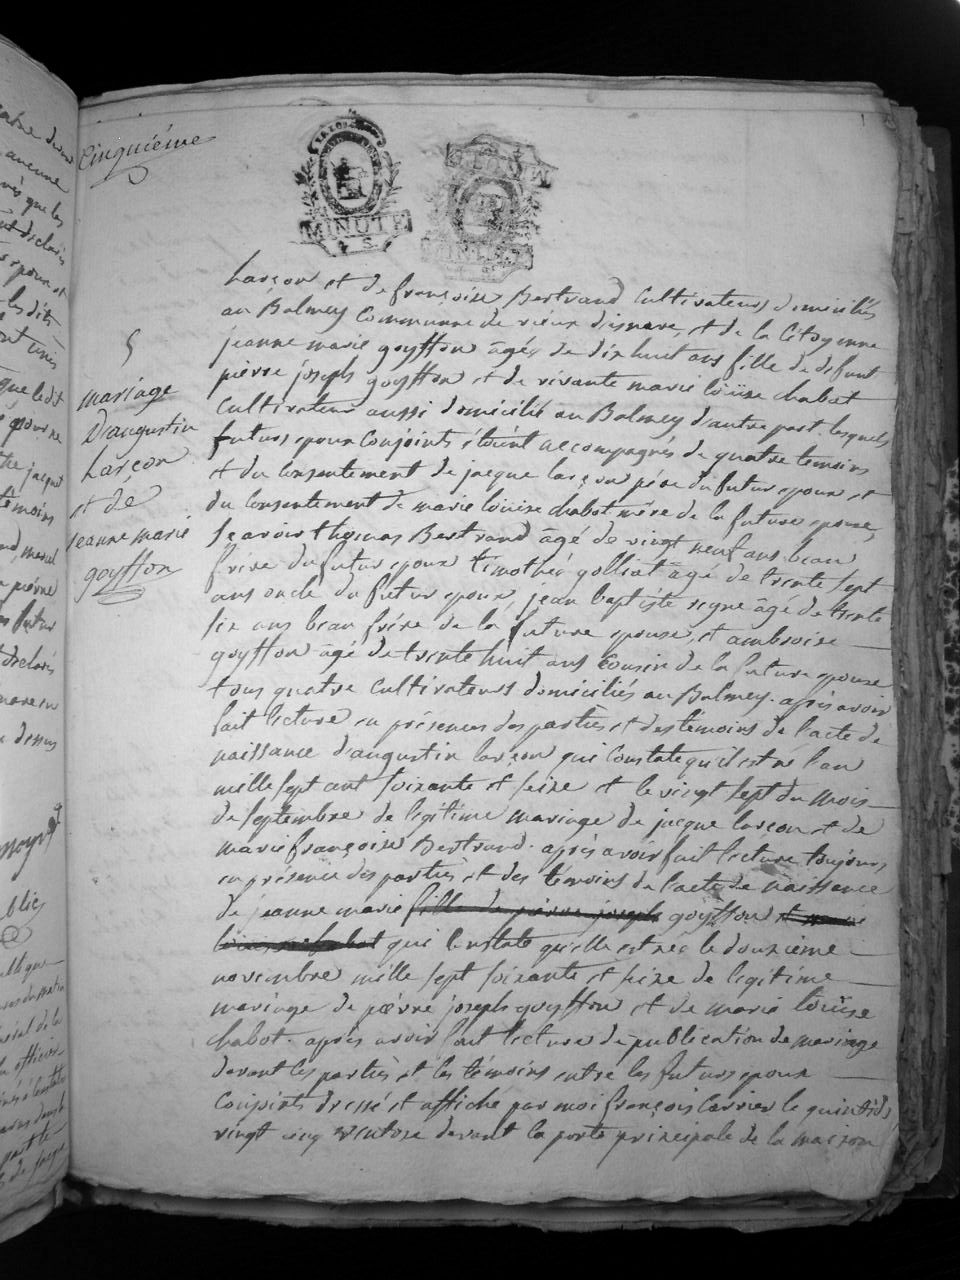 Cinquiéme
MINUTE
5
mariage
D'augustin
Larçon
et de
jeanne marie
goyffon
Larçon et de françoise Bertrand Cultivateurs domiciliés
au Balmey Commune de vieux disnave, et de la Citoyenne
jeanne marie goyffon âgée de dix huit ans fille de defunt
piérre joseph goyffon et de vivante marie loüise chabot
Cultivateur aussi domicilié au Balmey d'autre part. lesquels
futurs epoux Conjoints étoint accompagnés de quatre temoins
et du Consentement de jacque larçon pére du futur epoux et
du Consentement de marie loüise chabot mére de la future epouse,
Scavoir thomas Bertrand âgé de vingt neuf ans beau
frére du futur epoux timothé golliat âgé de trente sept
ans oncle du futur epoux, jean baptiste regne âgé de trente
six ans beau frére de la future epouse, et ambroise
goyffon âgé de trente huit ans Cousin de la future epouse
tous quatre Cultivateurs domiciliés au Balmey. aprés avoir
fait lecture en présences des partiés et des temoins de l'acte de
naissance d'augustin larçon qui Constate qu'il est né l'an
mille sept cent soixante et seize et le vingt sept du mois
de septembre de legitime mariage de jacque larçon et de
marie françoise Bertrand. aprés avoir fait lecture toujours
en présence des partiés et des témoins de l'acte de naissance
de jeanne marie fille de piérre joseph goyffon et marie
loüise chabot qui Constate qu'elle est née le douziéme
novembre mille sept soixante et seize de legitime
mariage de piérre joseph goyffon et de marie loüise
chabot. aprés avoir fait lecture de publication de mariage
devant les partiés et les témoins entre les futurs epoux
Conjoints dressé et affiché par moi françois Carrier le quintidi
vingt cinq ventose devant la porte principale de la maison